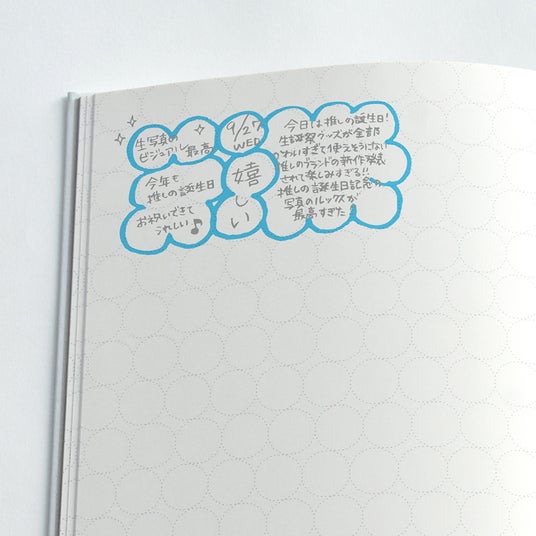 生写真の
ビジュアル最高
9/27
WED
今年も
推しの誕生日
お祝いできて
うれしい♪
嬉
し
い
今日は推しの誕生日!
生誕祭グッズが全部
かわいすぎて使えそうにない
推しのブランドの新作発売
されて楽しみすぎる!!
推しの誕生日記念の
写真のルックスが
最高すぎた!